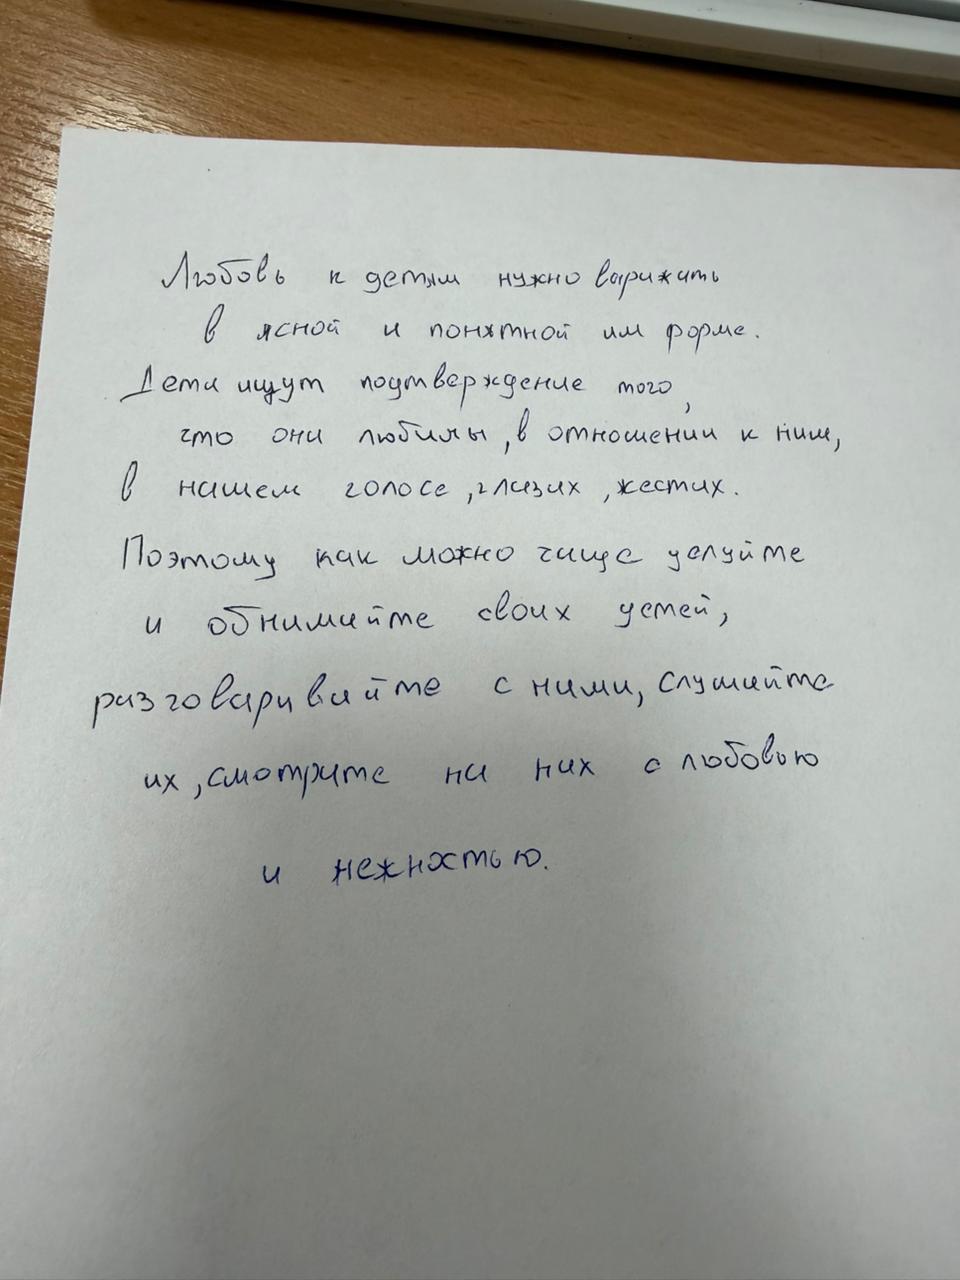 Любовь к детям нужно выражать
в ясной и понятной им форме.
Дети ищут подтверждение того,
что они любимы, в отношении к ним,
в нашем голосе, глазах, жестах.
Поэтому как можно чаще целуйте
и обнимайте своих детей,
разговаривайте с ними, слушайте
их, смотрите на них с любовью
и нежностью.